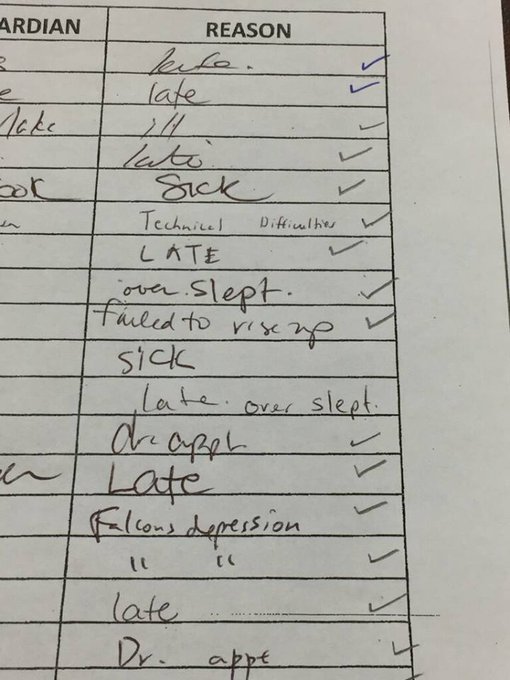 ARDIAN REASON
late.
e late
lake ill
late
ook Sick
Technical Difficulties
LATE
over slept.
failed to rise up
SICK
Late. over slept.
dr. appt
Late
Falcons depression
" "
late
Dr. appt